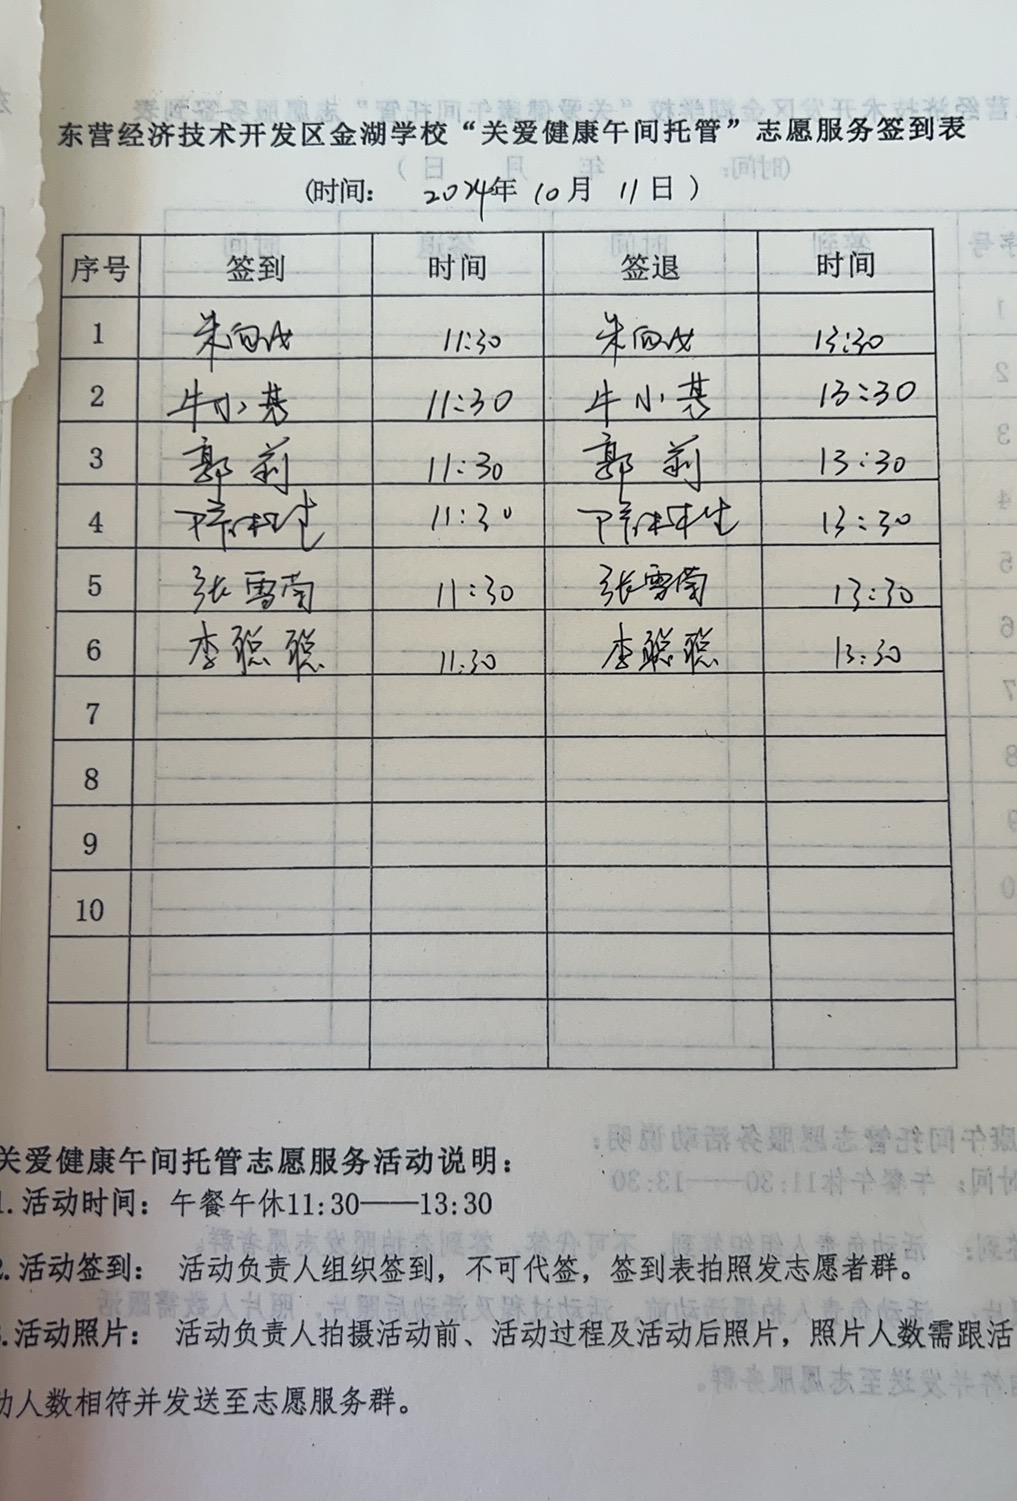 东营经济技术开发区金湖学校“关爱健康午间托管”志愿服务签到表
(时间： 2024年 10月 11日 )
序号 签到 时间 签退 时间
1 11:30 13:30
2 牛小 11:30 牛小 13:30
3 郭莉 11:30 郭莉 13:30
4 11:30 13:30
5 张雪 11:30 张雪 13:30
6 李聪聪 11:30 李聪聪 13:30
7
8
9
10
关爱健康午间托管志愿服务活动说明：
1.活动时间：午餐午休11:30——13:30
2.活动签到： 活动负责人组织签到，不可代签，签到表拍照发志愿者群。
3.活动照片： 活动负责人拍摄活动前、活动过程及活动后照片，照片人数需跟活
动人数相符并发送至志愿服务群。